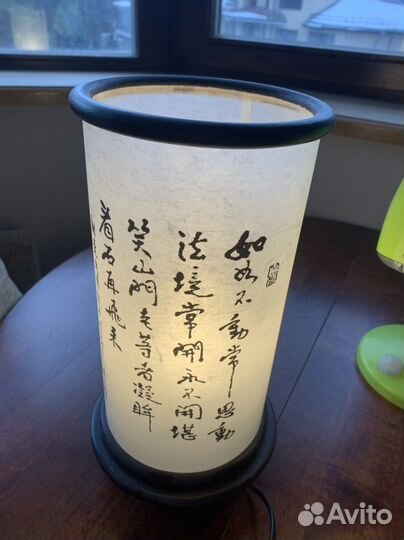 如如不動常思動
法境常開永不開堪
笑山門老等者凝眸
看石再飛来
Avito